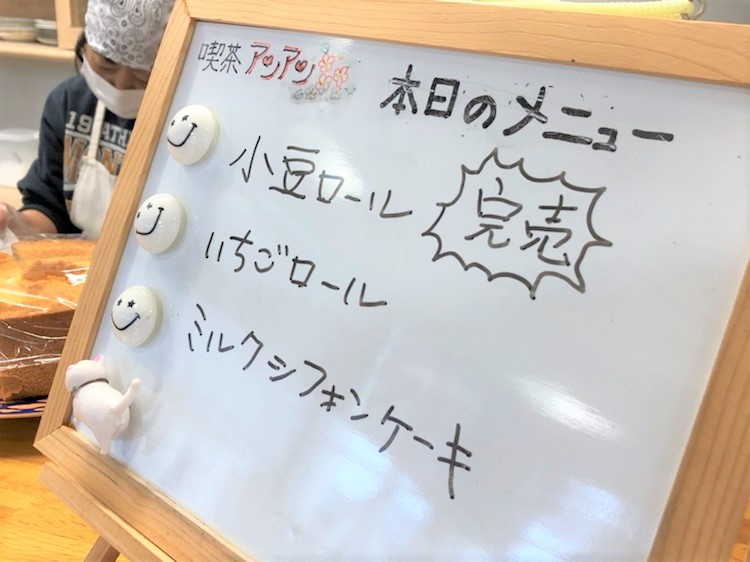 喫茶 アンアン
本日のメニュー
小豆ロール 完売
いちごロール
ミルクシフォンケーキ